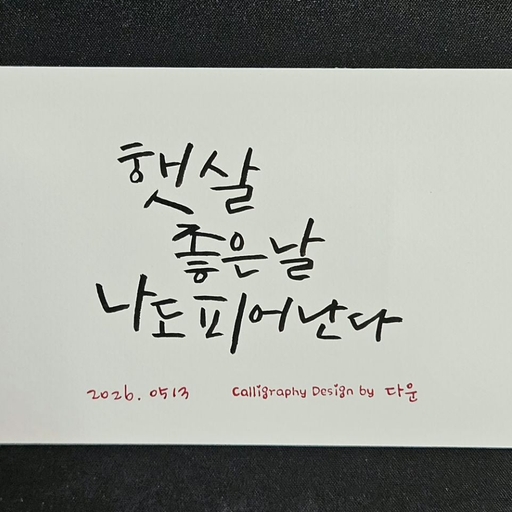 햇살
좋은날
나도피어난다
2026. 0513 Calligraphy Design by 다운